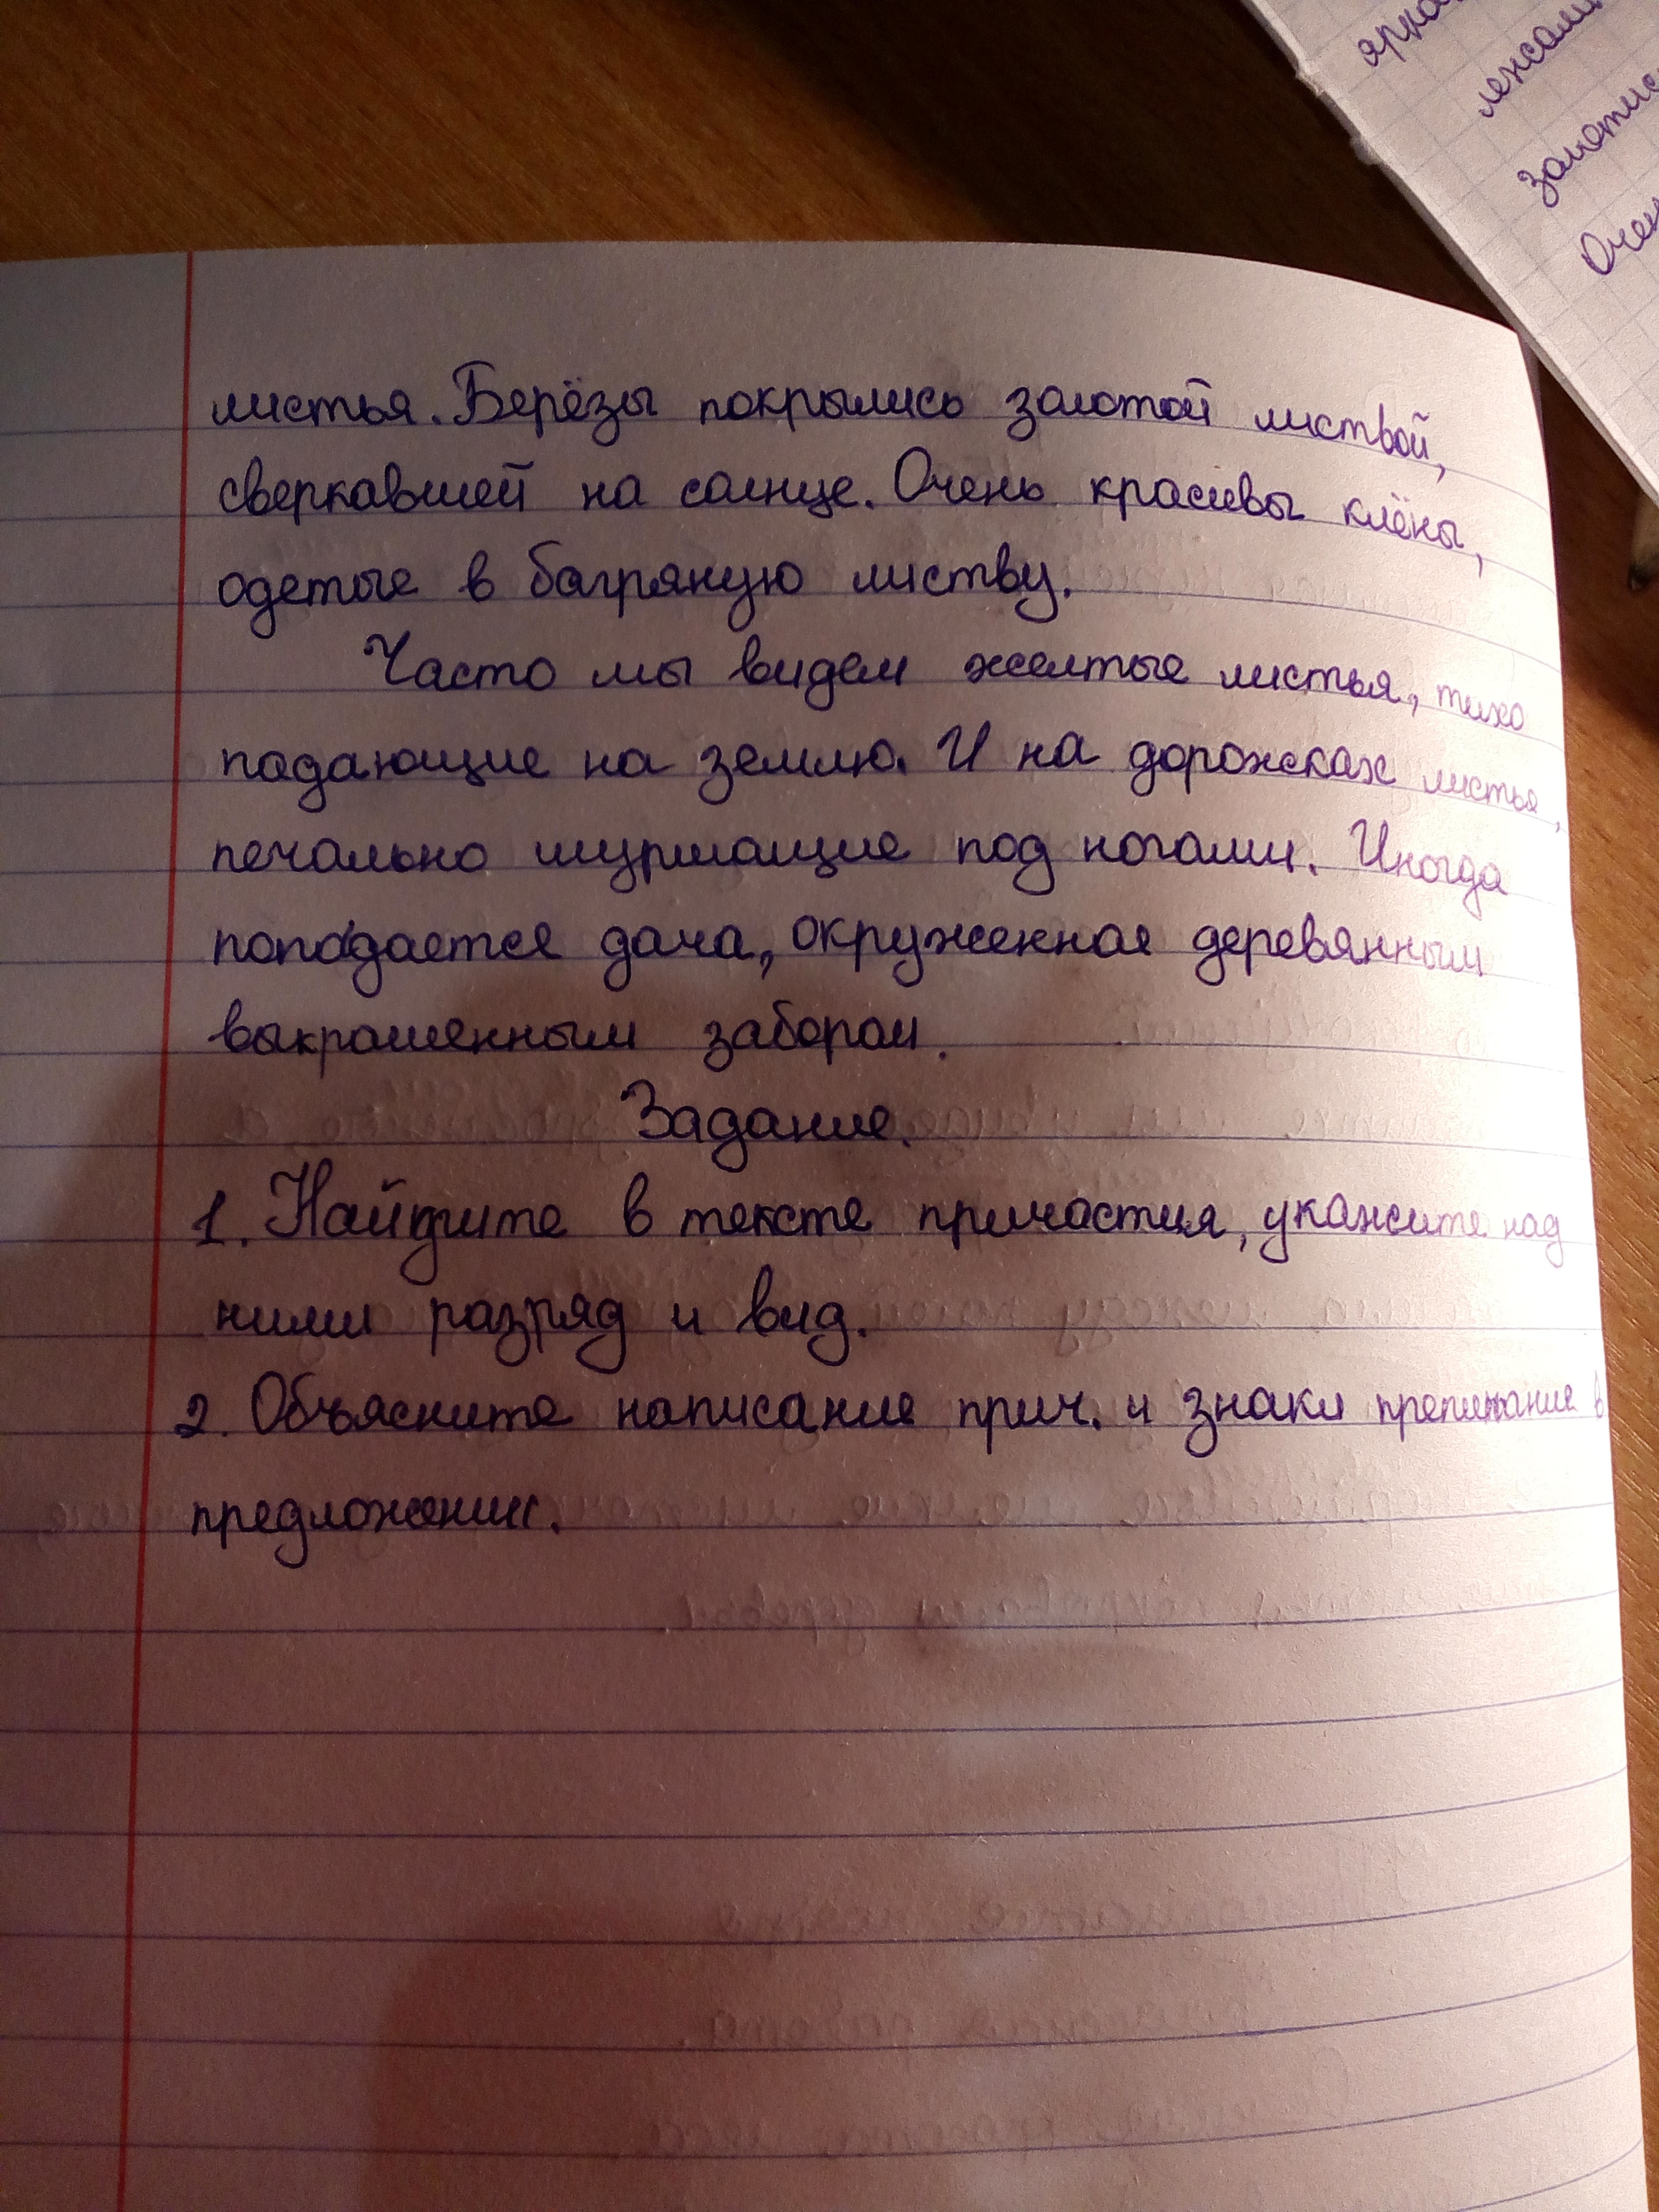 листья. Берёзы покрылись золотой листвой,
сверкавшей на солнце. Очень красивы клёны,
одетые в багряную листву.
Часто мы видем желтые листья, тихо
падающие на землю. И на дорожках листья,
печально шуршащие под ногами. Иногда
попадается дача, окруженная деревянным
выкрашенным забором.
Задание.
1. Найдите в тексте причастия, укажите над
ними разряд и вид.
2. Объясните написание прич. и знаки препинание в
предложении.